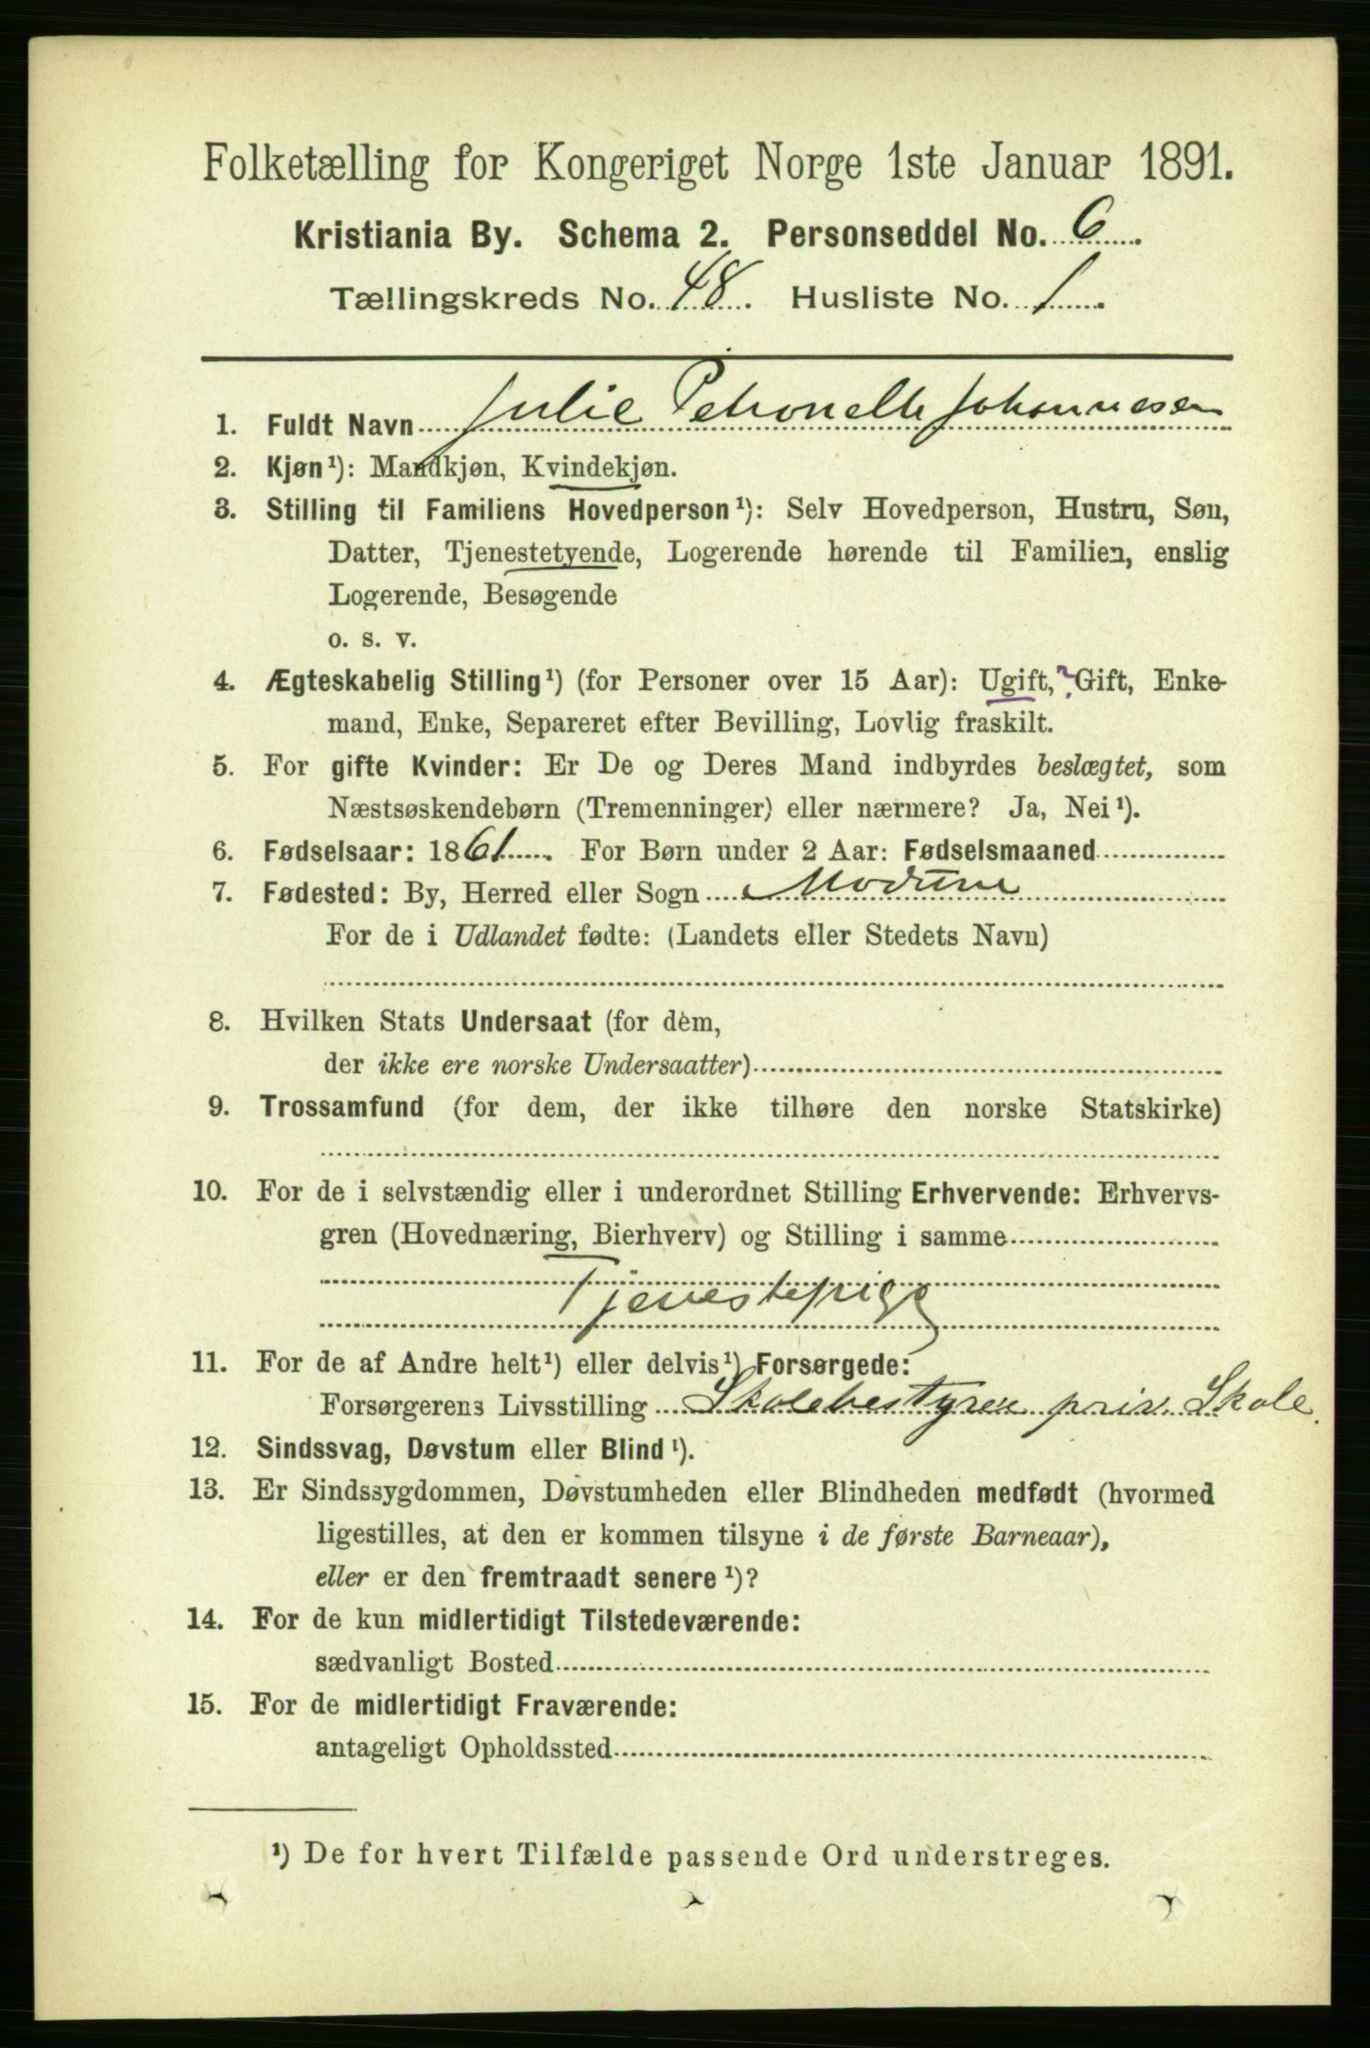 Folketælling for Kongeriget Norge 1ste Januar 1891.
Kristiania By. Schema 2. Personseddel No. 6
Tællingskreds No. 48. Husliste No. 1
1. Fuldt Navn Julie Petronelle Johannesen
2. Kjøn¹): Mandkjøn, Kvindekjøn.
3. Stilling til Familiens Hovedperson¹): Selv Hovedperson, Hustru, Søn,
Datter, Tjenestetyende, Logerende hørende til Familien, enslig
Logerende, Besøgende
o. s. v.
4. Ægteskabelig Stilling¹) (for Personer over 15 Aar): Ugift, ? Gift, Enke-
mand, Enke, Separeret efter Bevilling, Lovlig fraskilt.
5. For gifte Kvinder: Er De og Deres Mand indbyrdes beslægtet, som
Næstsøskendebørn (Tremenninger) eller nærmere? Ja, Nei¹).
6. Fødselsaar: 1861. For Børn under 2 Aar: Fødselsmaaned
7. Fødested: By, Herred eller Sogn Modum
For de i Udlandet fødte: (Landets eller Stedets Navn)
8. Hvilken Stats Undersaat (for dem,
der ikke ere norske Undersaatter)
9. Trossamfund (for dem, der ikke tilhøre den norske Statskirke)
10. For de i selvstændig eller i underordnet Stilling Erhvervende: Erhvervs-
gren (Hovednæring, Bierhverv) og Stilling i samme
Tjenestepige
11. For de af Andre helt¹) eller delvis¹) Forsørgede:
Forsørgerens Livsstilling Skolebestyrer priv. Skole.
12. Sindssvag, Døvstum eller Blind¹).
13. Er Sindssygdommen, Døvstumheden eller Blindheden medfødt (hvormed
ligestilles, at den er kommen tilsyne i de første Barneaar),
eller er den fremtraadt senere¹)?
14. For de kun midlertidigt Tilstedeværende:
sædvanligt Bosted
15. For de midlertidigt Fraværende:
antageligt Opholdssted
¹) De for hvert Tilfælde passende Ord understreges.